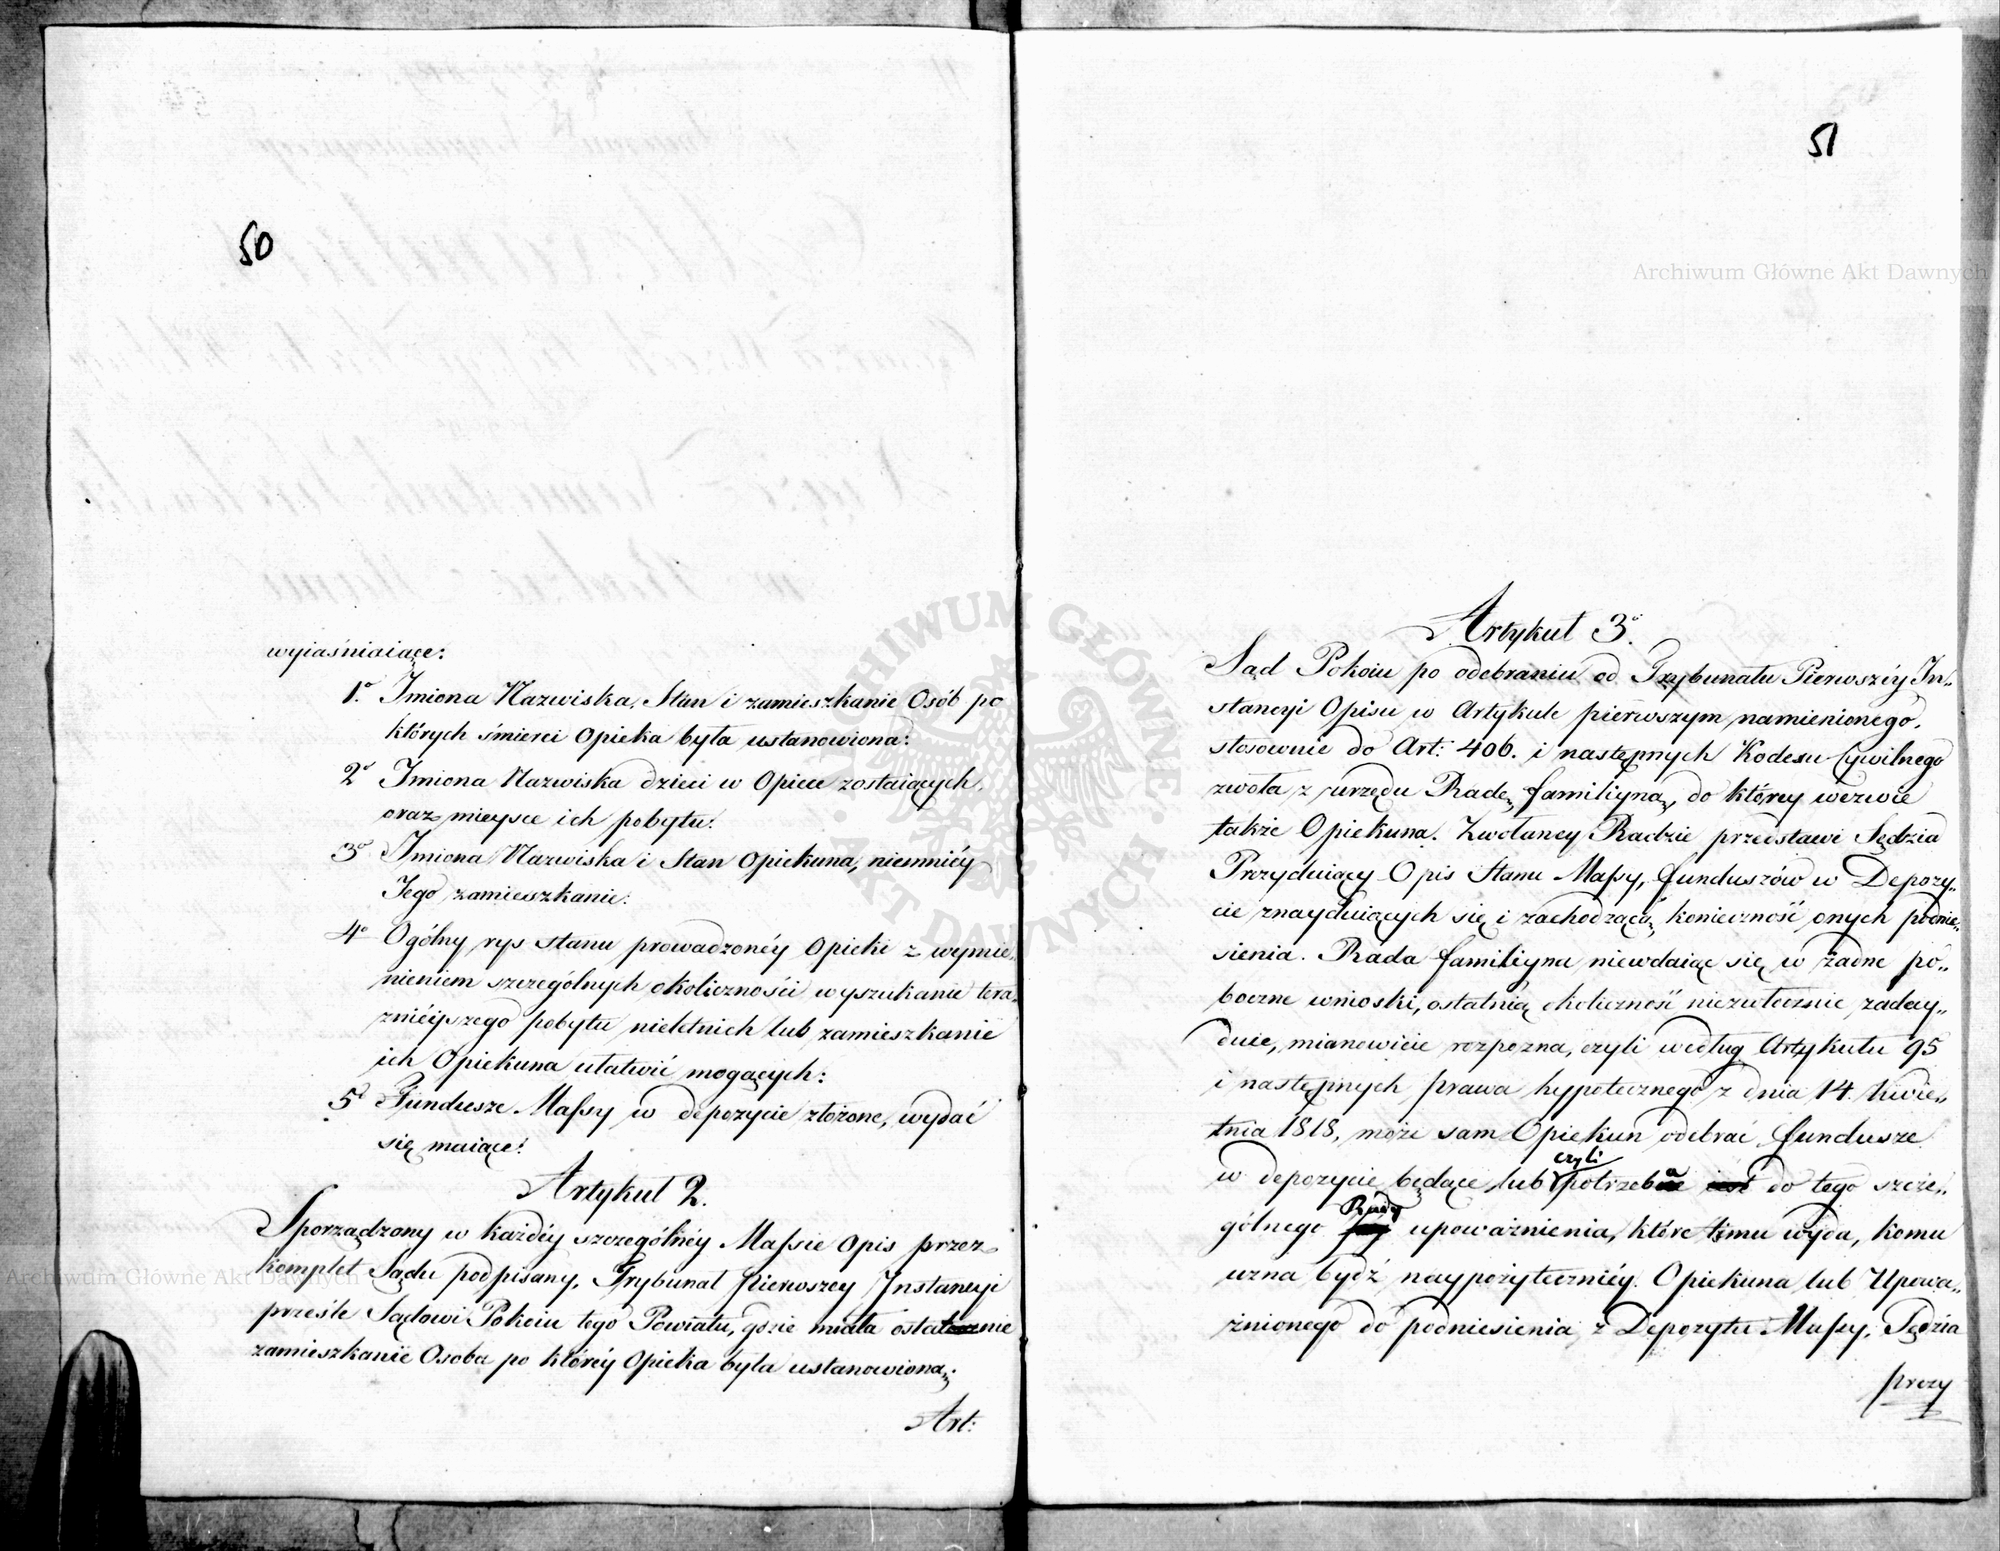 50
wyiaśniaiące:
1.º Imiona Nazwiska, Stan i zamieszkanie Osób po
których śmierci Opieka była ustanowiona:
2º Imiona Nazwiska dzieci w Opiece zostaiących,
oraz mieysce ich pobytu:
3º Imiona Nazwiska i Stan Opiekuna, niemniéy
Jego zamieszkanie:
4º Ogólny rys stanu prowadzonéy Opieki z wymie„
nieniem szczególnych okoliczności wyszukanie tera„
znieyszego pobytu nieletnich lub zamieszkanie
ich Opiekuna ułatwić mogących:
5º Fundusze Massy w depozycie złożone, wydać
się maiące:
Artykuł 2.
Sporządzony w każdéy szczególnéy Massie Opis przez
komplet Sądu podpisany, Trybunał pierwszey Instancyi
prześle Sądowi Pokoiu tego Powiatu, gdzie miała ostatnie
zamieszkanie Osoba po któréy Opieka była ustanowiona;
Art:
51
Artykuł 3º.
Sąd Pokoiu po odebraniu od Trybunału Pierwszéy In„
stancyi Opisu w Artykule pierwszym namienionego,
stosownie do Art: 406. i następnych Kodexu Cywilnego
zwoła z urzędu Radę familiyną, do którey wezwie
także Opiekuna. Zwołaney Radzie przedstawi Sędzia
Prezyduiący Opis Stanu Massy, funduszów w Depozy„
cie znayduiących się i zachodzącą konieczność onych podnie„
sienia. Rada familiyna niewdaiąc się w żadne po„
boczne wnioski, ostatnią okoliczność niezwłocznie zadecy„
duie, mianowicie rozpozna, czyli według Artykułu 95
i następnych prawa hypotecznego z dnia 14. Kwie„
tnia 1818, może sam Opiekun odebrać fundusze
w depozycie będące, lub czyli potrzeba do tego szcze„
gólnego Rady upoważnienia, które temu wyda, komu
uzna bydź naypożyteczniéy. Opiekuna lub Upowa„
żnionego do podniesienia z Depozytu Massy, Sędzia
prezy
Archiwum Główne Akt Dawnych
Archiwum Główne Akt Dawnych
ARCHIWUM GŁÓWNE AKT DAWNYCH